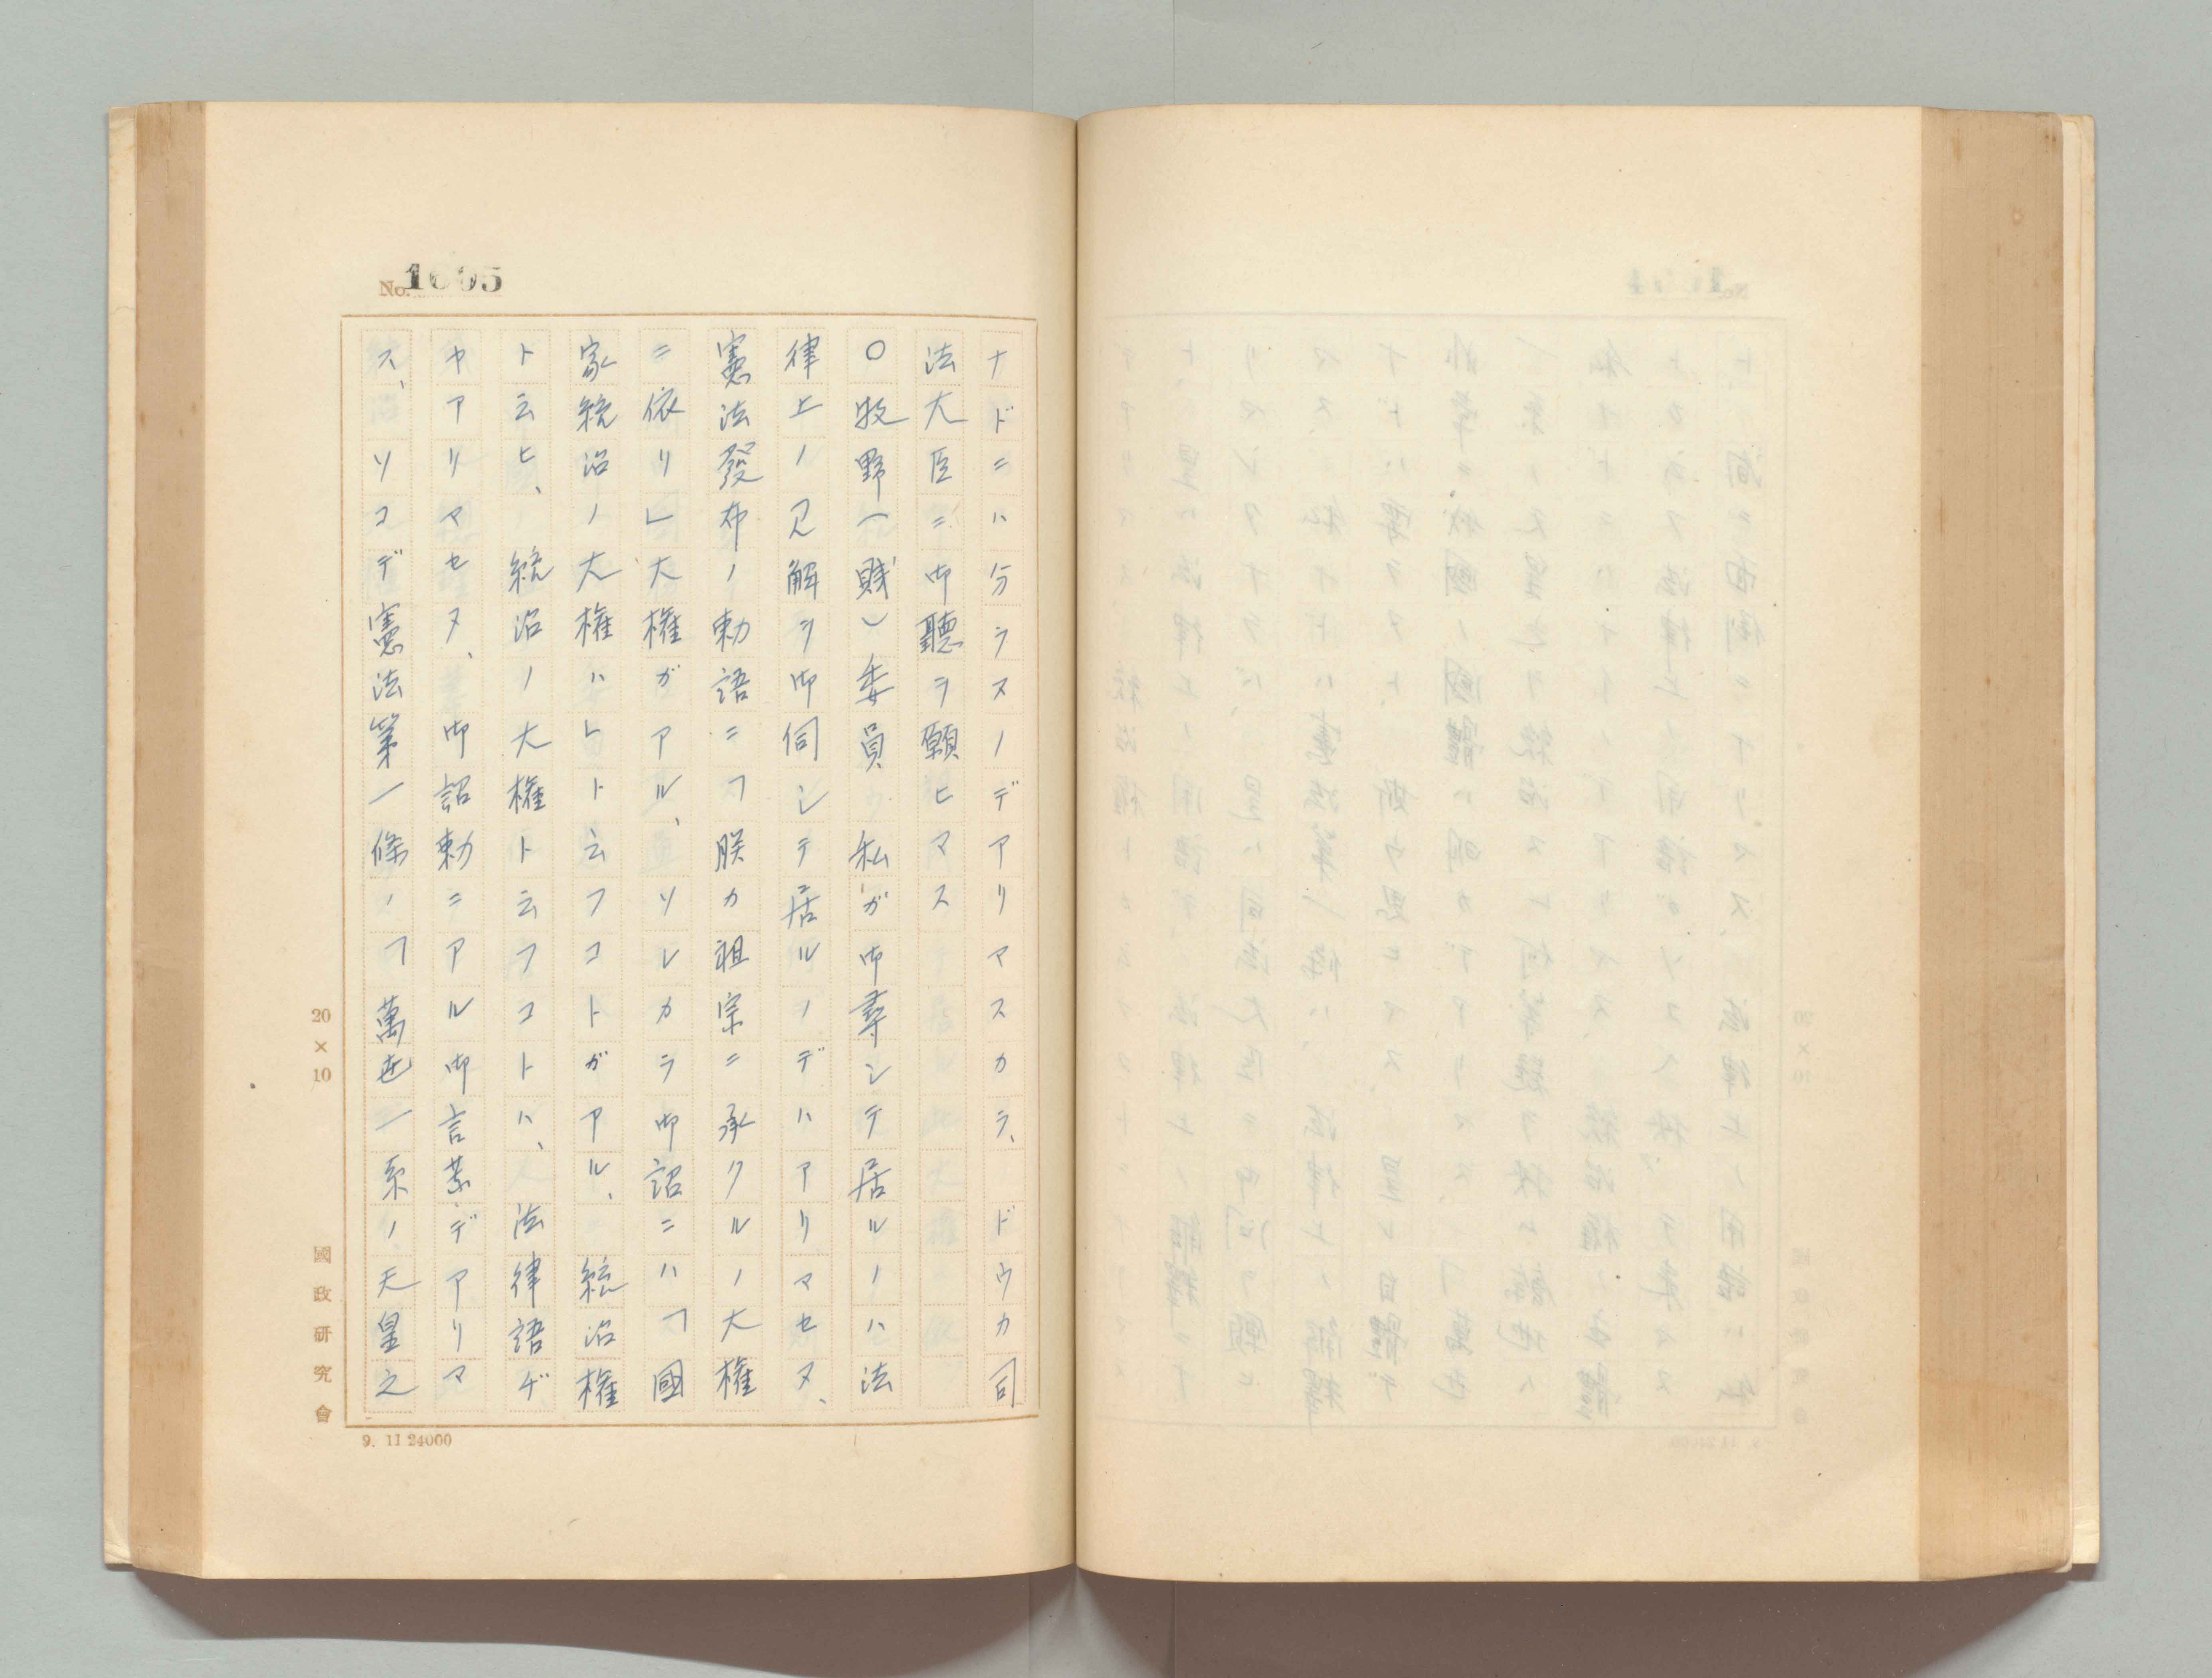 No. 1005
ナドニハ分ラヌノデアリマスカラ、ドウカ司
法大臣ニ御聽ヲ願ヒマス
○牧野(賤)委員 私ガ御尋シテ居ルノハ法
律上ノ見解ヲ御伺シテ居ルノデハアリマセヌ、
憲法發布ノ勅語ニ「朕カ祖宗ニ承クルノ大權
ニ依リ」大權ガアル、ソレカラ御詔ニハ「國
家統治ノ大權ハ」ト云フコトガアル、統治權
ト云ヒ、統治ノ大權ト云フコトハ、法律語ヂ
ヤアリマセヌ、御詔勅ニアル御言葉デアリマ
ス、ソコデ憲法第一條ノ「萬世一系ノ天皇之
20×10
國政研究會
9. 11 24000